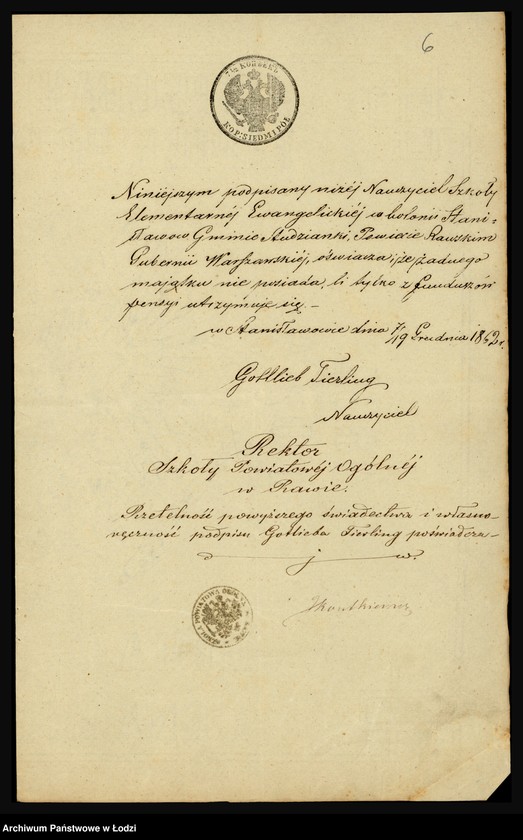 6
KOP. SIEDM I PÓŁ
Niniejszym podpisany niżéj Nauczyciel Szkoły
Elementarnéj Ewangelickiéj w kolonii Stani-
sławow Gminie Studzianki, Powiecie Rawskim
Gubernii Warszawskiéj, oświadcza, że żadnego
majątku nie posiada, li tylko z funduszów
pensyi utrzymuje się.
w Stanisławowie dnia 7/19 Grudnia 1862 r.
Gottlieb Tierling
Nauczyciel
Rektor
Szkoły Powiatowéj Ogólnéj
w Rawie.
Rzetelność powyższego świadectwa i własno-
ręczność podpisu Gotlieba Tierling poświadcza
SZKOŁA POWIATOWA
Archiwum Państwowe w Łodzi